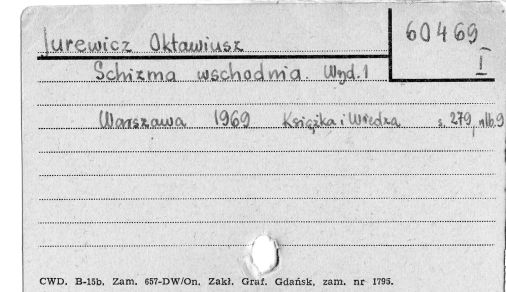 Jurewicz Oktawiusz
60469
I
Schizma wschodnia. Wyd. 1
Warszawa 1969 Książka i Wiedza s. 279, nlb. 9
CWD. B-15b. Zam. 657-DW/On. Zakł. Graf. Gdańsk, zam. nr 1795.